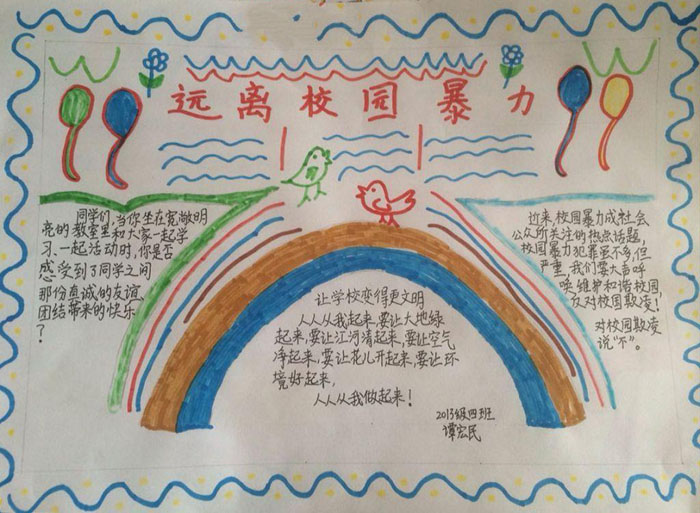 远离校园暴力
同学们,当你坐在宽敞明
亮的教室里和大家一起学
习、一起活动时,你是否
感受到了同学之间
那份真诚的友谊、
团结带来的快乐
?
近来,校园暴力成社会
公众所关注的热点话题,
校园暴力犯罪虽不多,但
严重,我们要大声呼
唤维护和谐校园
反对校园欺凌!
对校园欺凌
说“不”。
让学校变得更文明
人人从我起来,要让大地绿
起来,要让江河清起来,要让空气
净起来,要让花儿开起来,要让环
境好起来,
人人从我做起来!
2013级四班
谭宏民